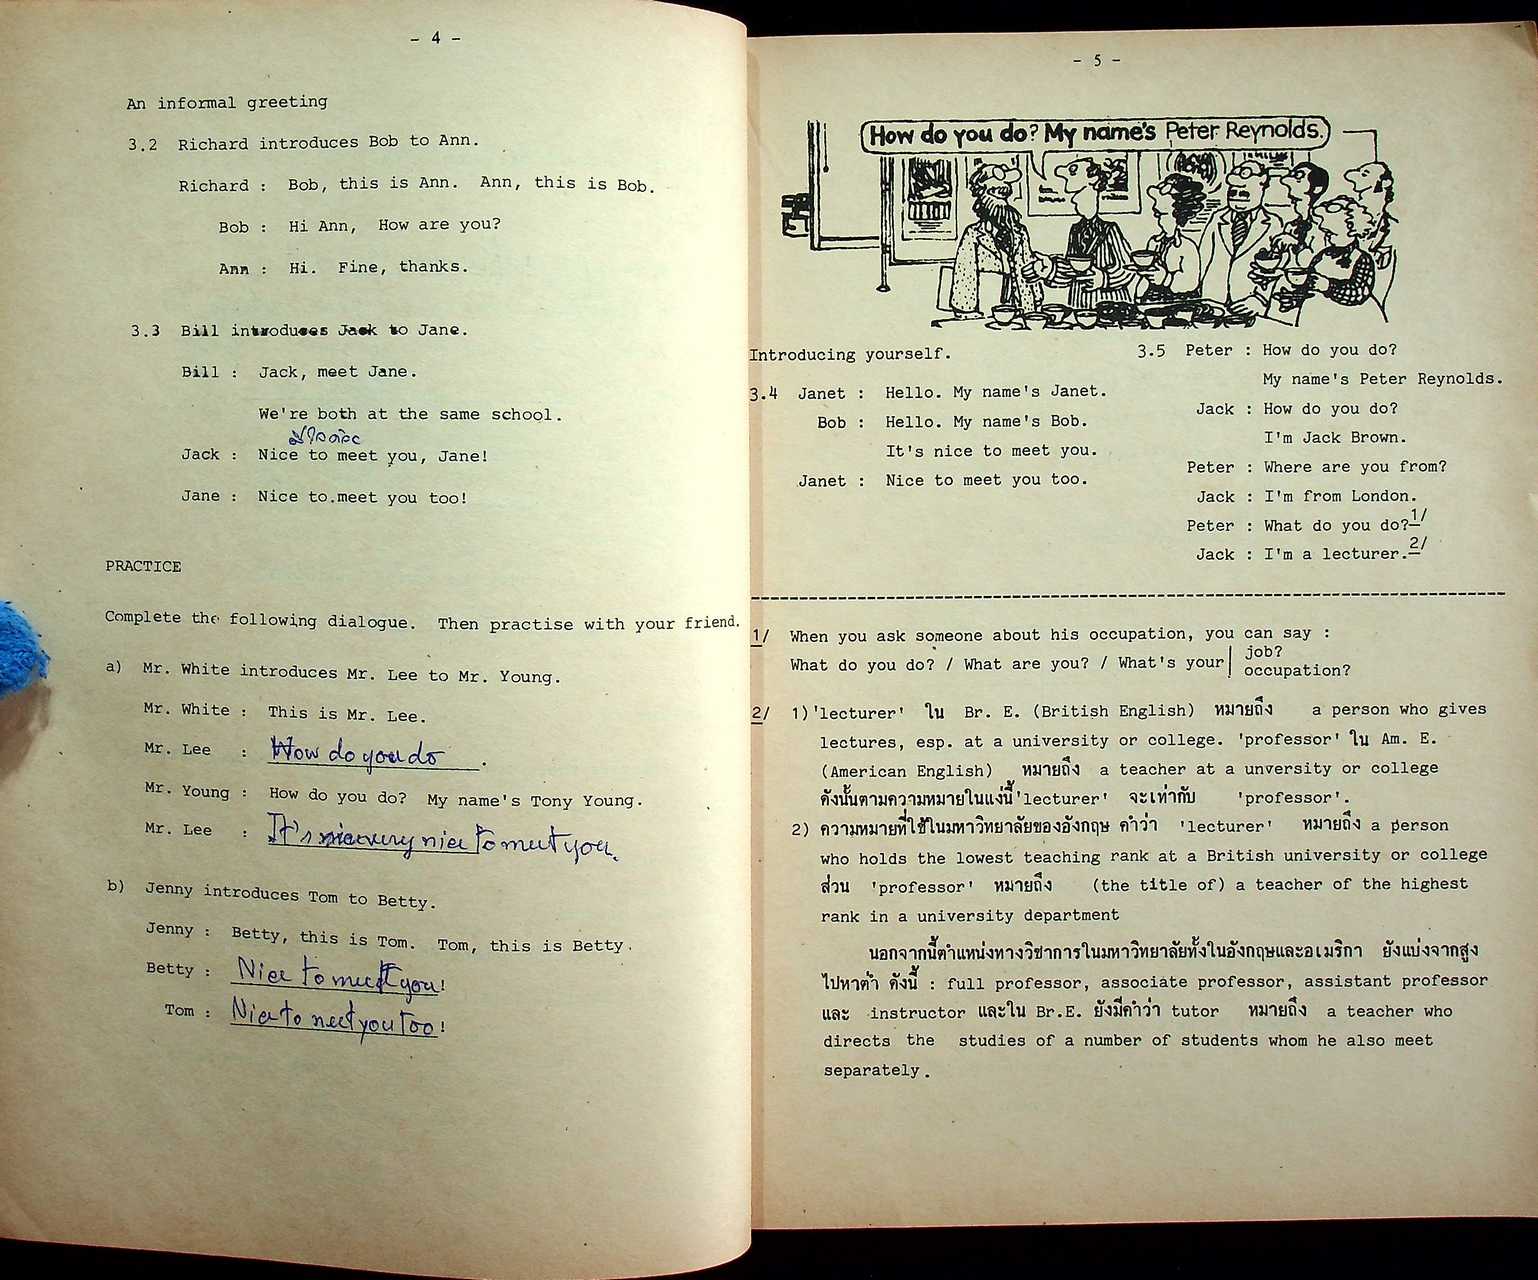 - 4 -
An informal greeting
3.2 Richard introduces Bob to Ann.
Richard : Bob, this is Ann. Ann, this is Bob.
Bob : Hi Ann, How are you?
Ann : Hi. Fine, thanks.
3.3 Bill introduces Jack to Jane.
Bill : Jack, meet Jane.
We're both at the same school.
Jack : Nice to meet you, Jane!
Jane : Nice to meet you too!
PRACTICE
Complete the following dialogue. Then practise with your friend.
a) Mr. White introduces Mr. Lee to Mr. Young.
Mr. White : This is Mr. Lee.
Mr. Lee : How do you do .
Mr. Young : How do you do? My name's Tony Young.
Mr. Lee : It's very nice to meet you.
b) Jenny introduces Tom to Betty.
Jenny : Betty, this is Tom. Tom, this is Betty.
Betty : Nice to meet you!
Tom : Nice to meet you too!
- 5 -
How do you do? My name's Peter Reynolds.
Introducing yourself.
3.4 Janet : Hello. My name's Janet.
Bob : Hello. My name's Bob.
It's nice to meet you.
Janet : Nice to meet you too.
3.5 Peter : How do you do?
My name's Peter Reynolds.
Jack : How do you do?
I'm Jack Brown.
Peter : Where are you from?
Jack : I'm from London.
Peter : What do you do?1/
Jack : I'm a lecturer.2/
1/ When you ask someone about his occupation, you can say :
What do you do? / What are you? / What's your job?
occupation?
2/ 1)'lecturer' ใน Br. E. (British English) หมายถึง a person who gives
lectures, esp. at a university or college. 'professor' ใน Am. E.
(American English) หมายถึง a teacher at a unversity or college
ดังนั้นตามความหมายในแง่นี้ 'lecturer' จะเท่ากับ 'professor'.
2) ความหมายที่ใช้ในมหาวิทยาลัยของอังกฤษ คำว่า 'lecturer' หมายถึง a person
who holds the lowest teaching rank at a British university or college
ส่วน 'professor' หมายถึง (the title of) a teacher of the highest
rank in a university department
นอกจากนี้ตำแหน่งทางวิชาการในมหาวิทยาลัยทั้งในอังกฤษและอเมริกา ยังแบ่งจากสูง
ไปหาต่ำ ดังนี้ : full professor, associate professor, assistant professor
และ instructor และใน Br.E. ยังมีคำว่า tutor หมายถึง a teacher who
directs the studies of a number of students whom he also meet
separately.